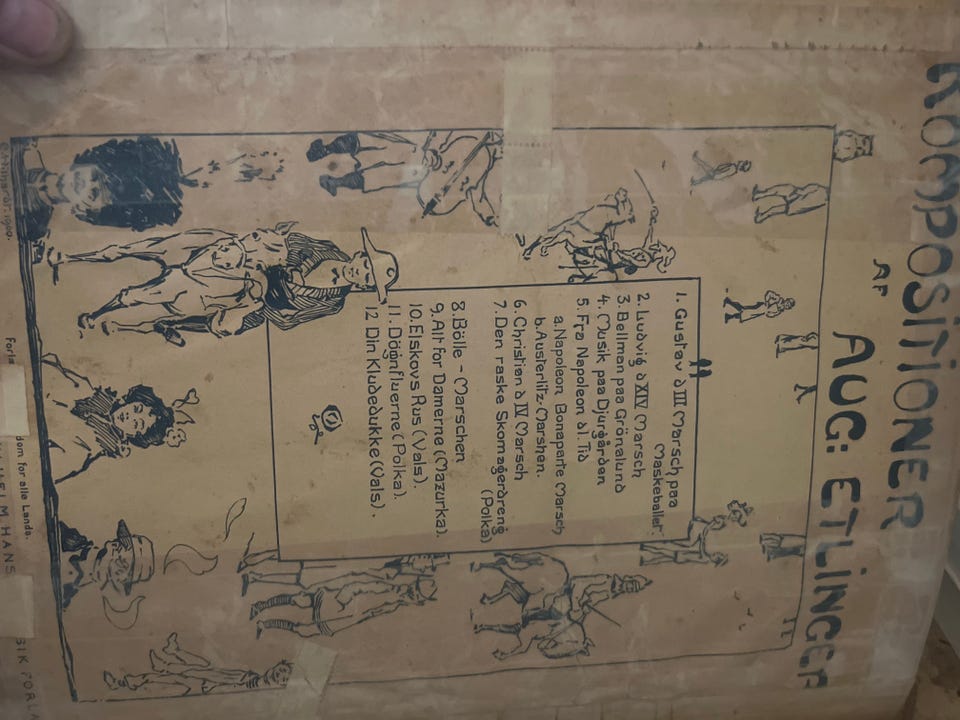 KOMPOSITIONER
AF
AUG: ETLINGER
1. Gustav d III Marsch paa
Maskeballet.
2. Ludvig d XIV Marsch
3. Bellman paa Grönalund
4. Musik paa Djurgården
5. Fra Napoleon d I. Tid
a. Napoleon Bonaparte Marsch
b. Austerlitz-Marshen.
6. Christian d IV Marsch
7. Den raske Skomagerdreng
(Polka)
8. Bölle - Marschen
9. Alt for Damerne (Mazurka).
10. Elskovs Rus (Vals).
11. Dögnfluerne (Polka).
12 Din Kludedukke (Vals).
1900.
Forla
dom for alle Lande.
HELM HANS
SIK FORLA